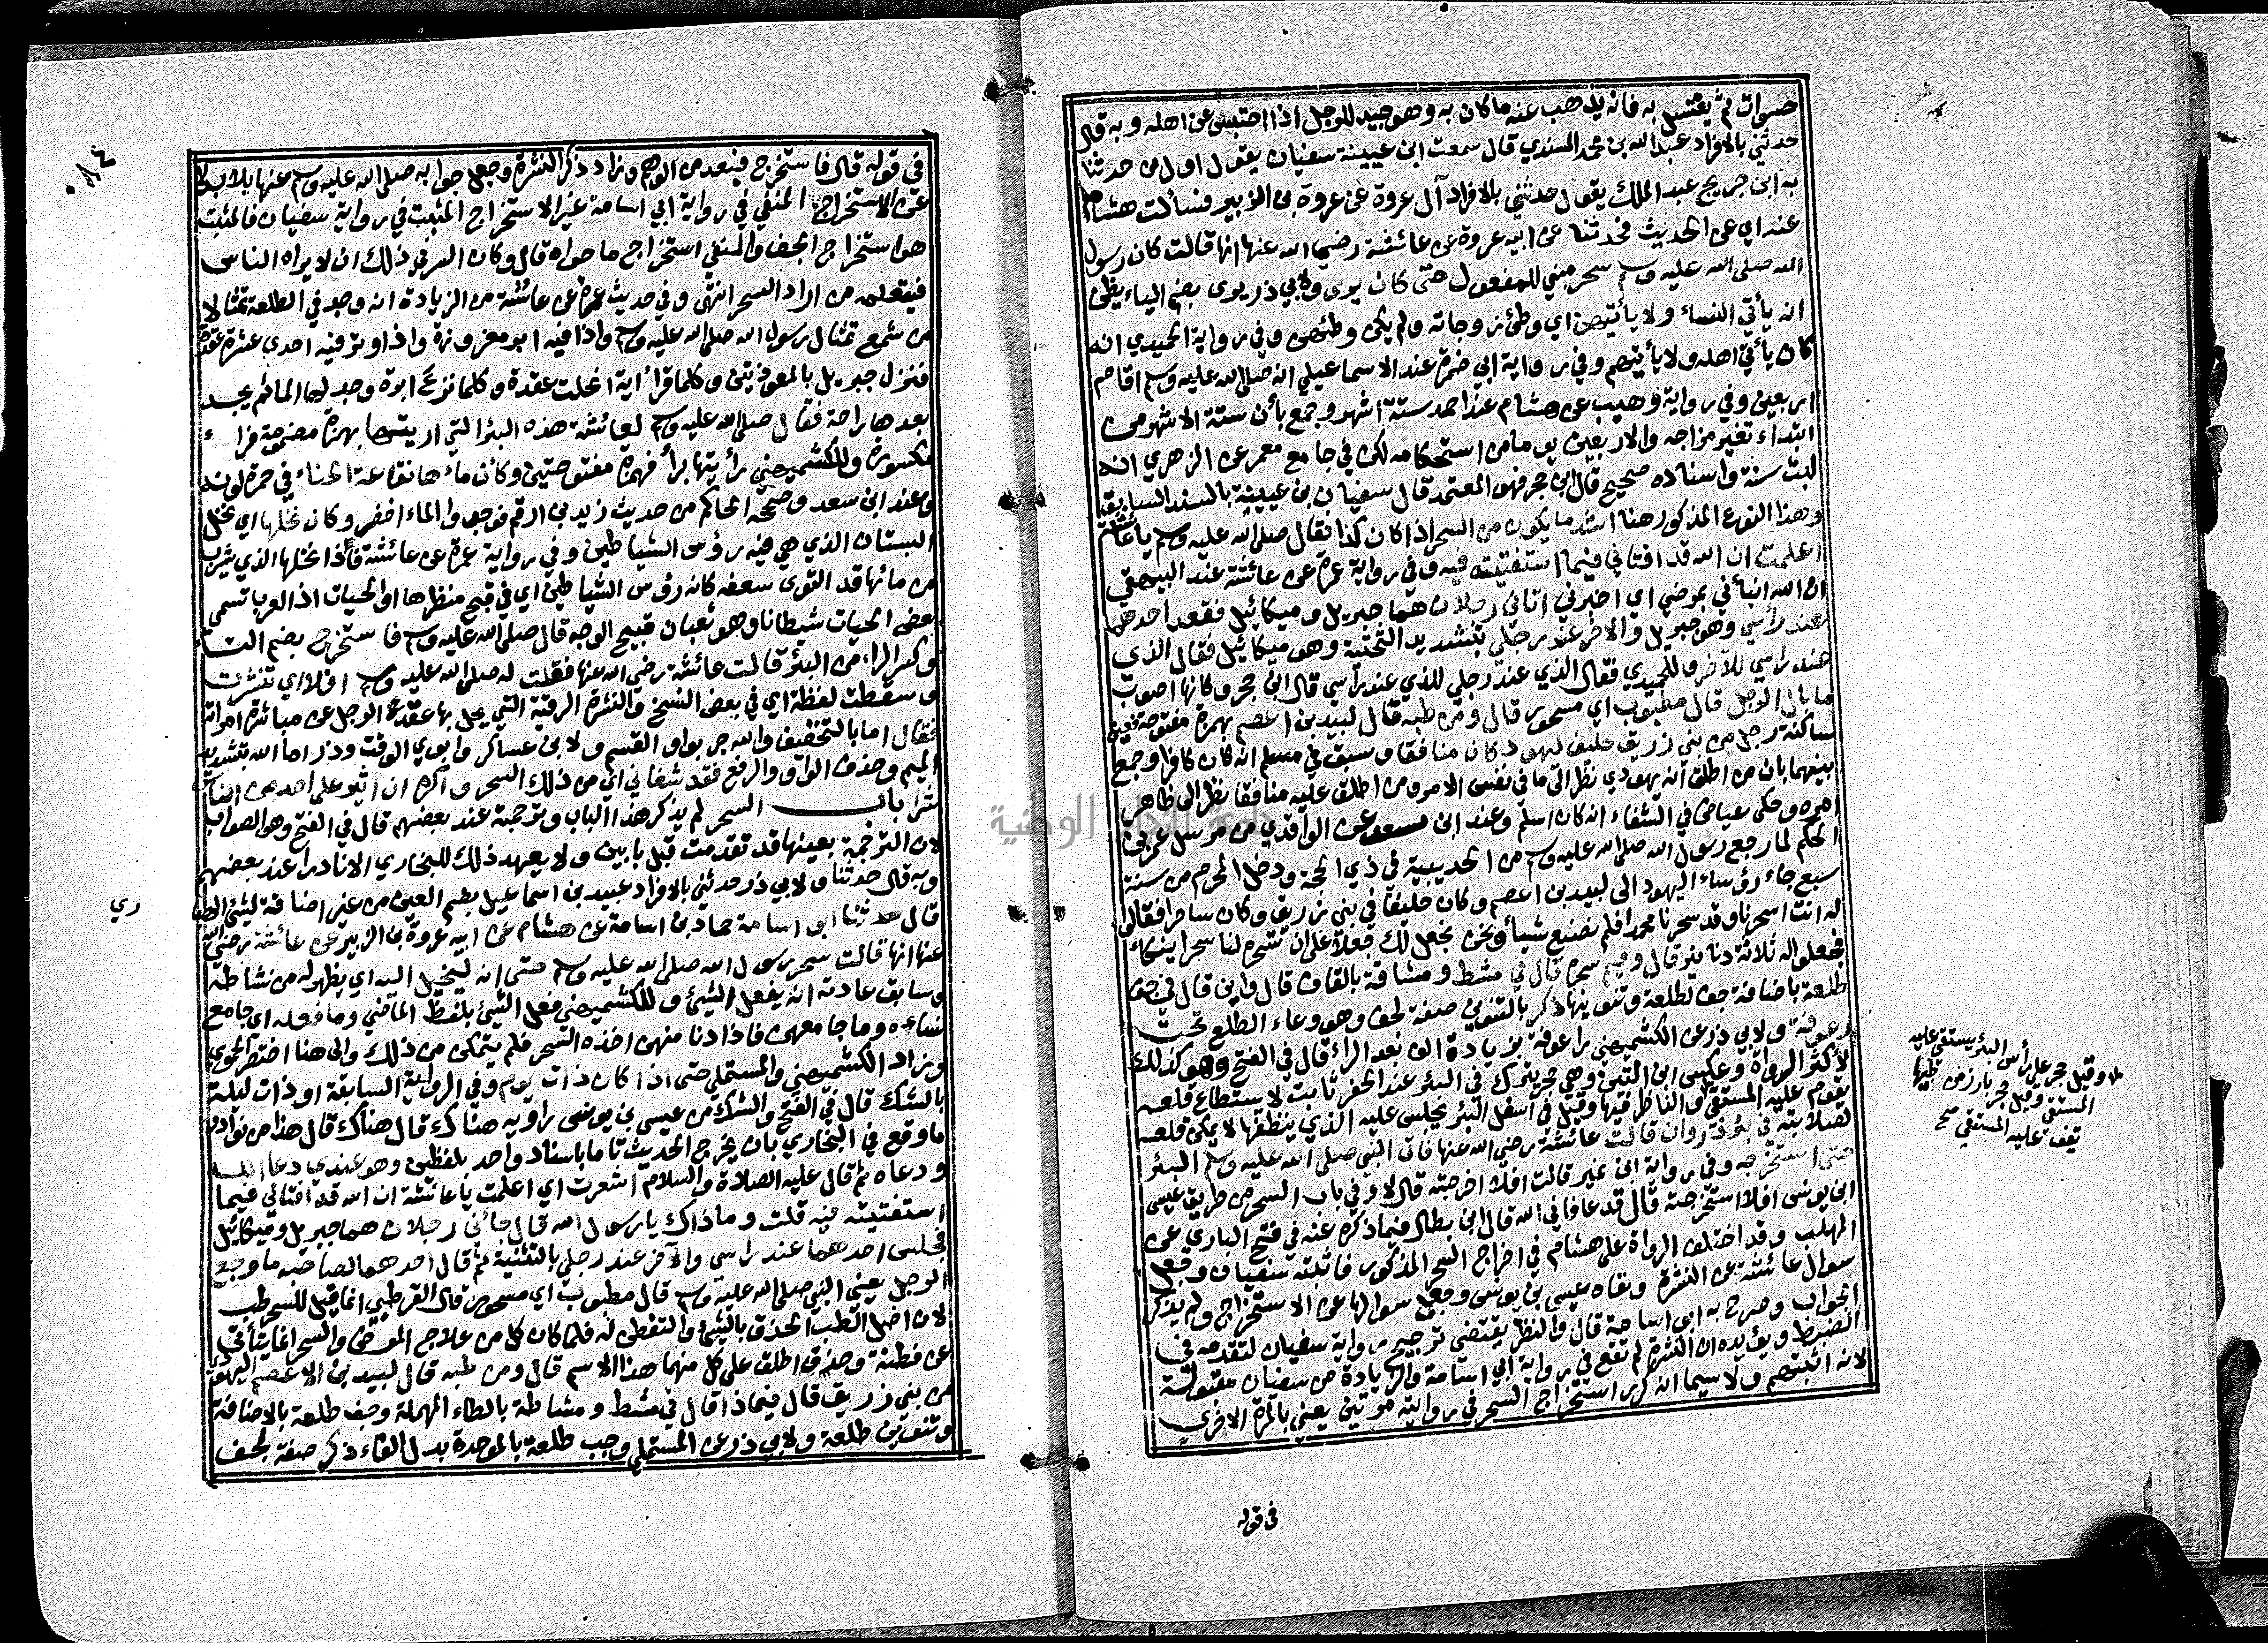 حسوات ثم يغتسل به فانه يذهب عنه ما كان به وهو جيد للرجل اذا احتبس عن اهله وبه قال
حدثني بالافراد عبد الله بن محمد المسندي قال سمعت ابن عيينة سفيان يقول اول من حدثنا
به ابن جريج عبد الملك يقول حدثني بالافراد آل عروة عن عروة بن الزبير فسألت هشاما
عنه اي عن الحديث فحدثنا عن ابيه عروة عن عائشة رضي الله عنها انها قالت كان رسول
الله صلى الله عليه وسلم سحر مبني للمفعول حتى كان يرى ولابي ذر يرى بضم الياء يظن
انه يأتي النساء ولا يأتيهن اي وطئ زوجاته ولم يكن وطئهن وفي رواية الحميدي انه
كان يأتي اهله ولا يأتيهم وفي رواية ابي ضمرة عند الاسماعيلي انه صلى الله عليه وسلم اقام
اربعين وفي رواية وهيب عن هشام عند احمد ستة اشهر وجمع بأن ستة الاشهر من
ابتداء تغير مزاجه والاربعين يوما من استحكامه لكن في جامع معمر عن الزهري انه
لبث سنة واسناده صحيح قال ابن حجر فهو المعتمد قال سفيان بن عيينة بالسند السابق
وهذا النوع المذكور هنا اشد ما يكون من السحر اذا كان كذا فقال صلى الله عليه وسلم يا عائشة
اعلمت ان الله قد افتاني فيما استفتيته فيه وفي رواية عمرة عن عائشة عند البيهقي
ان الله انبأني بمرضي اي اخبرني اتاني رجلان هما جبريل وميكائيل فقعد احدهما
عند رأسي وهو جبريل والآخر عند رجلي بتشديد التحتية وهو ميكائيل فقال الذي
عند راسي للآخر وللحميدي فقال الذي عند رجلي للذي عند راسي قال ابن حجر وكانها اصوب
ما بال الرجل قال مطبوب اي مسحور قال ومن طبه قال لبيد بن اعصم بهمزة مفتوحة فعين
ساكنة رجل من بني زريق حليف ليهود كان منافقا وسبق في مسلم انه كان كافرا وجمع
بينهما بان من اطلق انه يهودي نظر الى ما في نفس الامر ومن اطلق عليه منافقا نظر الى ظاهر
امره وحكى عياض في الشفاء انه كان اسلم وعند ابن سعد عن الواقدي من مرسل عمر بن
الحكم لما رجع رسول الله صلى الله عليه وسلم من الحديبية في ذي الحجة ودخل المحرم من سنة
سبع جاء رؤساء اليهود الى لبيد بن اعصم وكان حليفا في بني زريق وكان ساحرا فقالوا
له انت اسحرنا وقد سحرنا محمدا فلم نصنع شيأ ونحن نجعل لك جعلا على ان تسحره لنا سحرا ينكاه
فجعلوا له ثلاثة دنانير قال وفيم سحره قال في مشط ومشاقة بالقاف قال واين قال في جف
طلعة باضافة جف لطلعة وتنوينها ذكر بالتنوين صفة لجف وهو وعاء الطلع تحت
رعوفة ولابي ذر عن الكشميهني راعوفة بزيادة الف بعد الراء قال في الفتح وهو كذلك
لأكثر الرواة وعكس ابن التين وهي حجر يترك في البئر عند الحفر ثابت لا يستطاع قلعه
يقوم عليه المستقي او الناظر فيها وقيل في اسفل البئر يجلس عليه الذي ينظفها لا يمكن قلعه
لصلابته في بئر ذروان قالت عائشة رضي الله عنها فاتى النبي صلى الله عليه وسلم البئر
حتى استخرجه وفي رواية ابن نمير قالت افلا اخرجته قال لا وفي باب السحر من طريق عيسى
ابن يونس افلا استخرجته قال قد عافاني الله قال ابن بطال فيما ذكره عنه في فتح الباري عن
المهلب وقد اختلف الرواة على هشام في اخراج السحر المذكور فاثبته سفيان وجعل
سؤال عائشة عن النشرة ونفاه عيسى بن يونس وجعل سؤالها عن الاستخراج ولم يذكر
الجواب وصرح به ابو اسامة قال والنظر يقتضي ترجيح رواية سفيان لتقدمه في
الضبط ويؤيده ان النشرة لم تقع في رواية ابي اسامة والزيادة من سفيان مقبولة
لانه اثبتهم ولا سيما انه كرر استخراج السحر في روايته مرتين يعني بالمرة الاخرى
وقيل حجر على رأس البئر يستقي عليه
المستقي وقيل حجر بارز من طيها
تقف عليه المستقي صح
في قوله
٠٨٤
في قوله قال فاستخرج فيبعد من الوهم وزاد ذكر النشرة وجعل جوابه صلى الله عليه وسلم عنها بلا بدلا
عن الاستخراج المنفي في رواية ابي اسامة غير الاستخراج المثبت في رواية سفيان فالمثبت
هو استخراج الجف والمنفي استخراج ما حواه قال وكان السر في ذلك ان لا يراه الناس
فيتعلمه من اراد السحر انتهى وفي حديث عمرة عن عائشة من الزيادة انه وجد في الطلعة تمثالا
من شمع تمثال رسول الله صلى الله عليه وسلم واذا فيه ابر مغروزة واذا وتر فيه احدى عشرة عقدة
فنزل جبريل بالمعوذتين وكلما قرأ اية انحلت عقدة وكلما نزع ابرة وجد لها الما ثم يجد
بعدها راحة فقال صلى الله عليه وسلم لعائشة هذه البئر التي اريتها بهمزة مضمومة فراء
مكسورة وللكشميهني رأيتها براء فهمزة مفتوحتين وكأن ماءها نقاعة الحناء في حمرة لونه
وعند ابن سعد وصححه الحاكم من حديث زيد بن ارقم فوجدوا الماء اخضر وكان نخلها اي نخل
البستان الذي هي فيه رؤس الشياطين وفي رواية عمرة عن عائشة فاذا نخلها الذي يشرب
من مائها قد التوى سعفه كانه رؤس الشياطين اي في قبح منظرها او الحيات اذ العرب تسمي
بعض الحيات شيطانا وهو ثعبان قبيح الوجه قال صلى الله عليه وسلم فاستخرج بضم التاء
وكسر الراء من البئر قالت عائشة رضي الله عنها فقلت له صلى الله عليه وسلم افلا اي تنشرت
وسقطت لفظة اي في بعض النسخ والنشرة الرقية التي يحل بها عقد الرجل عن مباشرة امراته
فقال اما بالتخفيف والله جر بواو القسم ولابن عساكر وابوي الوقت وذر اما الله بتشديد
الميم وحذف الواو والرفع فقد شفاني اي من ذلك السحر واكره ان اثير على احد من الناس
شرا باب السحر لم يذكر هذا الباب وترجمته عند بعضهم قال في الفتح وهو الصواب
لان الترجمة بعينها قد تقدمت قبل بابين ولا يعهد ذلك للبخاري الا نادرا عند بعضهم
وبه قال حدثنا ولابي ذر حدثني بالافراد عبيد بن اسماعيل بضم العين من غير اضافة لشيء الهبا
ري
قال حدثنا ابو اسامة حماد بن اسامة عن هشام عن ابيه عروة بن الزبير عن عائشة رضي الله
عنها انها قالت سحر رسول الله صلى الله عليه وسلم حتى انه ليخيل اليه اي يظهر له من نشاطه
وسابق عادته انه يفعل الشيئ وللكشميهني فعل الشيئ بلفظ الماضي وما فعله اي جامع
نساءه وما جامعهن فاذا دنا منهن اخذه السحر فلم يتمكن من ذلك والى هنا اختصر الحموي
وزاد الكشميهني والمستملي حتى اذا كان ذات يوم وفي الرواية السابقة او ذات ليلة
بالشك قال في الفتح والشك من عيسى بن يونس راويه هناك قال هناك قال هذا من نوادر
ما وقع في البخاري بان يخرج الحديث تاما باسناد واحد بلفظين وهو عندي دعا الله
ودعاه ثم قال عليه الصلاة والسلام اشعرت اي اعلمت يا عائشة ان الله قد افتاني فيما
استفتيته فيه قلت وما ذاك يا رسول الله قال جائني رجلان هما جبريل وميكائيل
فجلس احدهما عند راسي والآخر عند رجلي بالتثنية ثم قال احدهما لصاحبه ما وجع
الرجل يعني النبي صلى الله عليه وسلم قال مطبوب اي مسحور قال القرطبي انما قيل للسحر طب
لان اصل الطب الحذق بالشيئ والتفطن له فلما كان كل من علاج المرض والسحر انما يتأتى
عن فطنة وحذق اطلق على كل منهما هذا الاسم قال ومن طبه قال لبيد بن الاعصم اليهودي
من بني زريق قال فيما ذا قال في مشط ومشاطة بالطاء المهملة وجف طلعة بالاضافة
وتنوين طلعة ولابي ذر عن المستملي وجب طلعة بالموحدة بدل الفاء ذكر صفة لجف